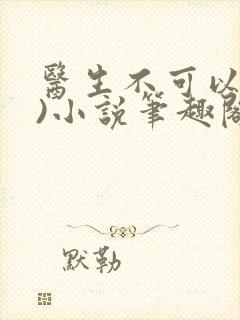 醫生不可以
)小說筆趣閣
默勒